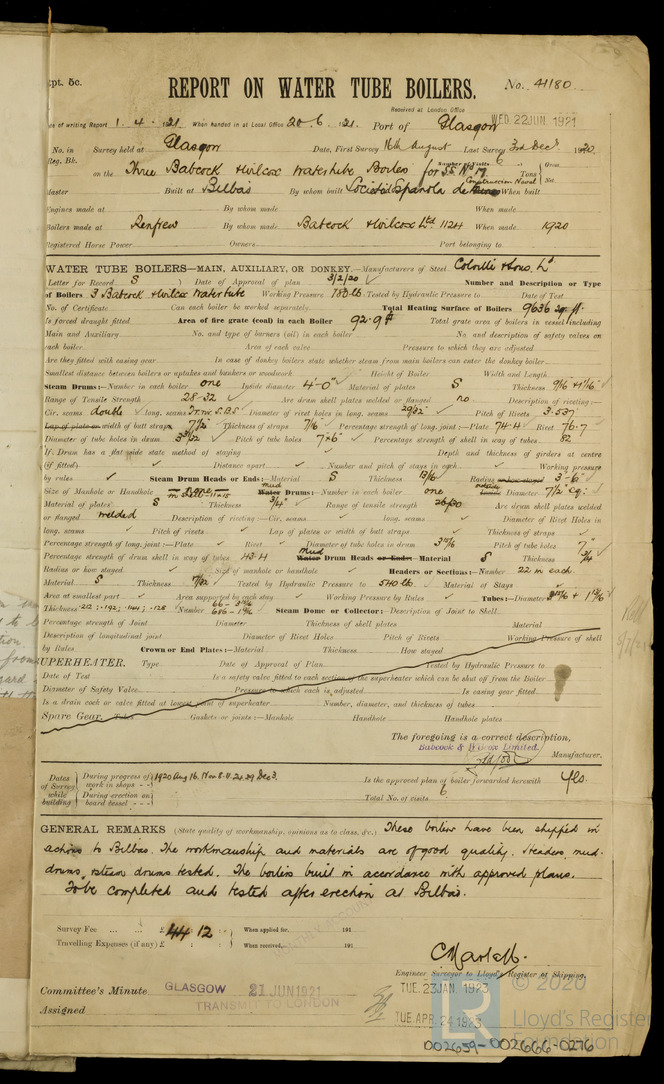 Rpt. 5c.
REPORT ON WATER TUBE BOILERS.
No. 41180
Received at London Office
WED. 22 JUN 1921
Date of writing Report 1. 4. 1921 When handed in at Local Office 20.6.1921. Port of Glasgow
No. in Survey held at Glasgow Date, First Survey 16th August Last Survey 3rd Decr. 1920
Reg. Bk. Number of Visits 6
on the Three Babcock & Wilcox Watertube Boilers for SS No 19 Tons Gross Net
Master Built at Bilbao By whom built Sociedad Espanola de Construccion Naval When built
Engines made at By whom made When made
Boilers made at Renfrew By whom made Babcock & Wilcox Ltd 1124 When made 1920
Registered Horse Power Owners Port belonging to
WATER TUBE BOILERS—MAIN, AUXILIARY, OR DONKEY.—Manufacturers of Steel Colville & Sons, Ld.
Letter for Record S Date of Approval of plan 3/2/20 Number and Description or Type
of Boilers 3 Babcock & Wilcox Watertube Working Pressure Tested by Hydraulic Pressure to Date of Test
No. of Certificate Can each boiler be worked separately Total Heating Surface of Boilers 9636 sq. ft.
Is forced draught fitted Area of fire grate (coal) in each Boiler 92.9 Total grate area of boilers in vessel including
Main and Auxiliary No. and type of burners (oil) in each boiler No. and description of safety valves on
each boiler Area of each valve Pressure to which they are adjusted
Are they fitted with easing gear In case of donkey boilers state whether steam from main boilers can enter the donkey boiler
Smallest distance between boilers or uptakes and bunkers or woodwork Height of Boiler Width and Length
Steam Drums:—Number in each boiler one Inside diameter 4'-0" Material of plates S Thickness 9/16 + 11/16
Range of Tensile Strength 28-32 Are drum shell plates welded or flanged no Description of riveting:—
Cir. seams double long. seams D.B.S. Diameter of rivet holes in long. seams 29/32" Pitch of Rivets 3.537
Lap of plate or width of butt straps 7 1/2" Thickness of straps 7/16 Percentage strength of long. joint:—Plate 74.4 Rivet 76.7
Diameter of tube holes in drum Pitch of tube holes Percentage strength of shell in way of tubes 82
If Drum has a flat side state method of staying Depth and thickness of girders at centre
(if fitted) Distance apart Number and pitch of stays in each Working pressure
by rules Steam Drum Heads or Ends:—Material S Thickness 13/16 Radius or how stayed 3'-6"
Size of Manhole or Handhole Water Mud Drums:—Number in each boiler one Diameter 7 1/2" sq.
Material of plates S Thickness 3/4" Range of tensile strength 26/30 Are drum shell plates welded
or flanged welded Description of riveting:—Cir. seams long. seams Diameter of Rivet Holes in
long. seams Pitch of rivets Lap of plates or width of butt straps Thickness of straps
Percentage strength of long. joint:—Plate Rivet Diameter of tube holes in drum Pitch of tube holes 7"
Percentage strength of drum shell in way of tubes 43.4 Water Mud Drum Heads or Ends:—Material S Thickness 3/4
Radius or how stayed Size of manhole or handhole Headers or Sections:—Number 22 in each
Material S Thickness Tested by Hydraulic Pressure to 540 lb Material of Stays
Area at smallest part Area supported by each stay Working Pressure by Rules Tubes:—Diameter
Thickness Number Steam Dome or Collector:—Description of Joint to Shell
Percentage strength of Joint Diameter Thickness of shell plates Material
Description of longitudinal joint Diameter of Rivet Holes Pitch of Rivets Working Pressure of shell
by Rules Crown or End Plates:—Material Thickness How stayed
SUPERHEATER. Type Date of Approval of Plan Tested by Hydraulic Pressure to
Date of Test Is a safety valve fitted to each section of the superheater which can be shut off from the Boiler
Diameter of Safety Valve Pressure to which each is adjusted Is easing gear fitted
Is a drain cock or valve fitted at lowest point of superheater Number, diameter, and thickness of tubes
Spare Gear. Tubes Gaskets or joints:—Manhole Handhole Handhole plates
The foregoing is a correct description,
Babcock & Wilcox Limited.
Manufacturer.
Dates of Survey while building
During progress of work in shops - - 1920 Aug 16. Nov 8. 11. 24. 29 Dec 3.
During erection on board vessel - - -
Is the approved plan of boiler forwarded herewith Yes.
Total No. of visits 6
GENERAL REMARKS (State quality of workmanship, opinions as to class, &c.) These boilers have been shipped in
sections to Bilbao. The workmanship and materials are of good quality. Headers, mud-
drums, steam drums tested. The boilers built in accordance with approved plans.
To be completed and tested after erection at Bilbao.
Survey Fee ... ... £ 44 : 12 : When applied for, 191
Travelling Expenses (if any) £ : : When received, 191
Engineer Surveyor to Lloyd's Register of Shipping.
Committee's Minute GLASGOW 21 JUN 1921
TUE. 23 JAN. 1923
Assigned TRANSMIT TO LONDON
TUE. APR. 24 1923
© 2020
Lloyd's Register
Foundation
002659-002666-0276